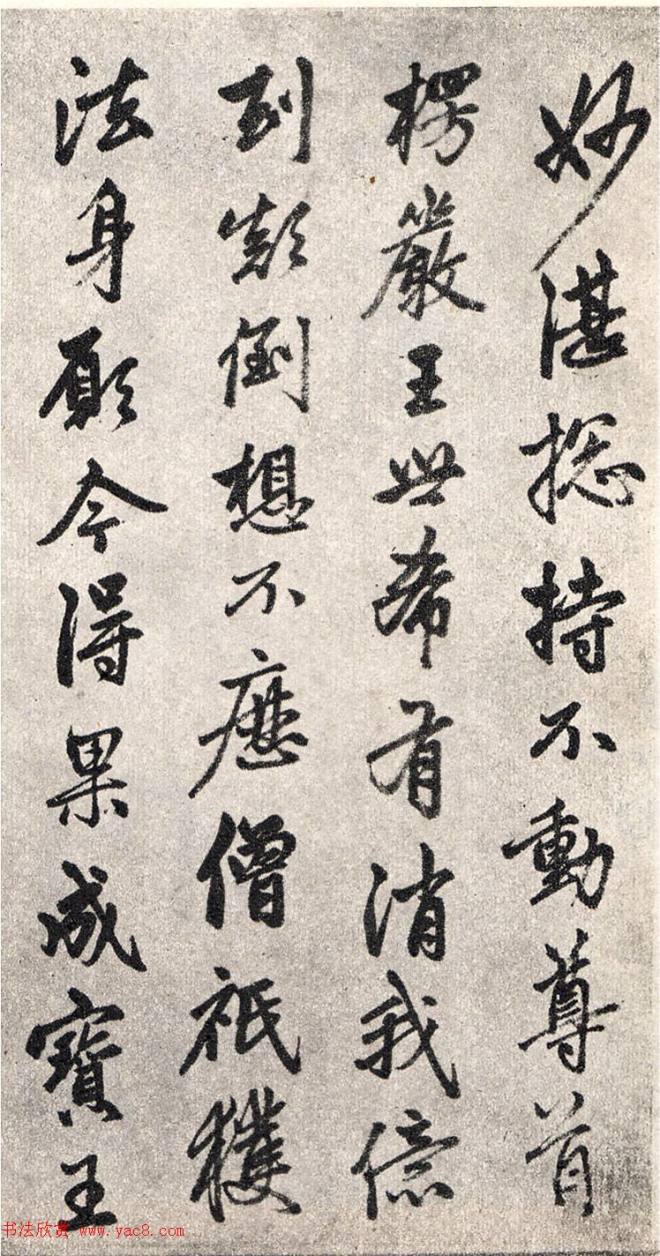 妙湛捴持不動尊首
楞嚴王世希有消我億
劫顛倒想不歷僧祇穫
法身願今得果成寶王
书法欣赏 www.yac8.com